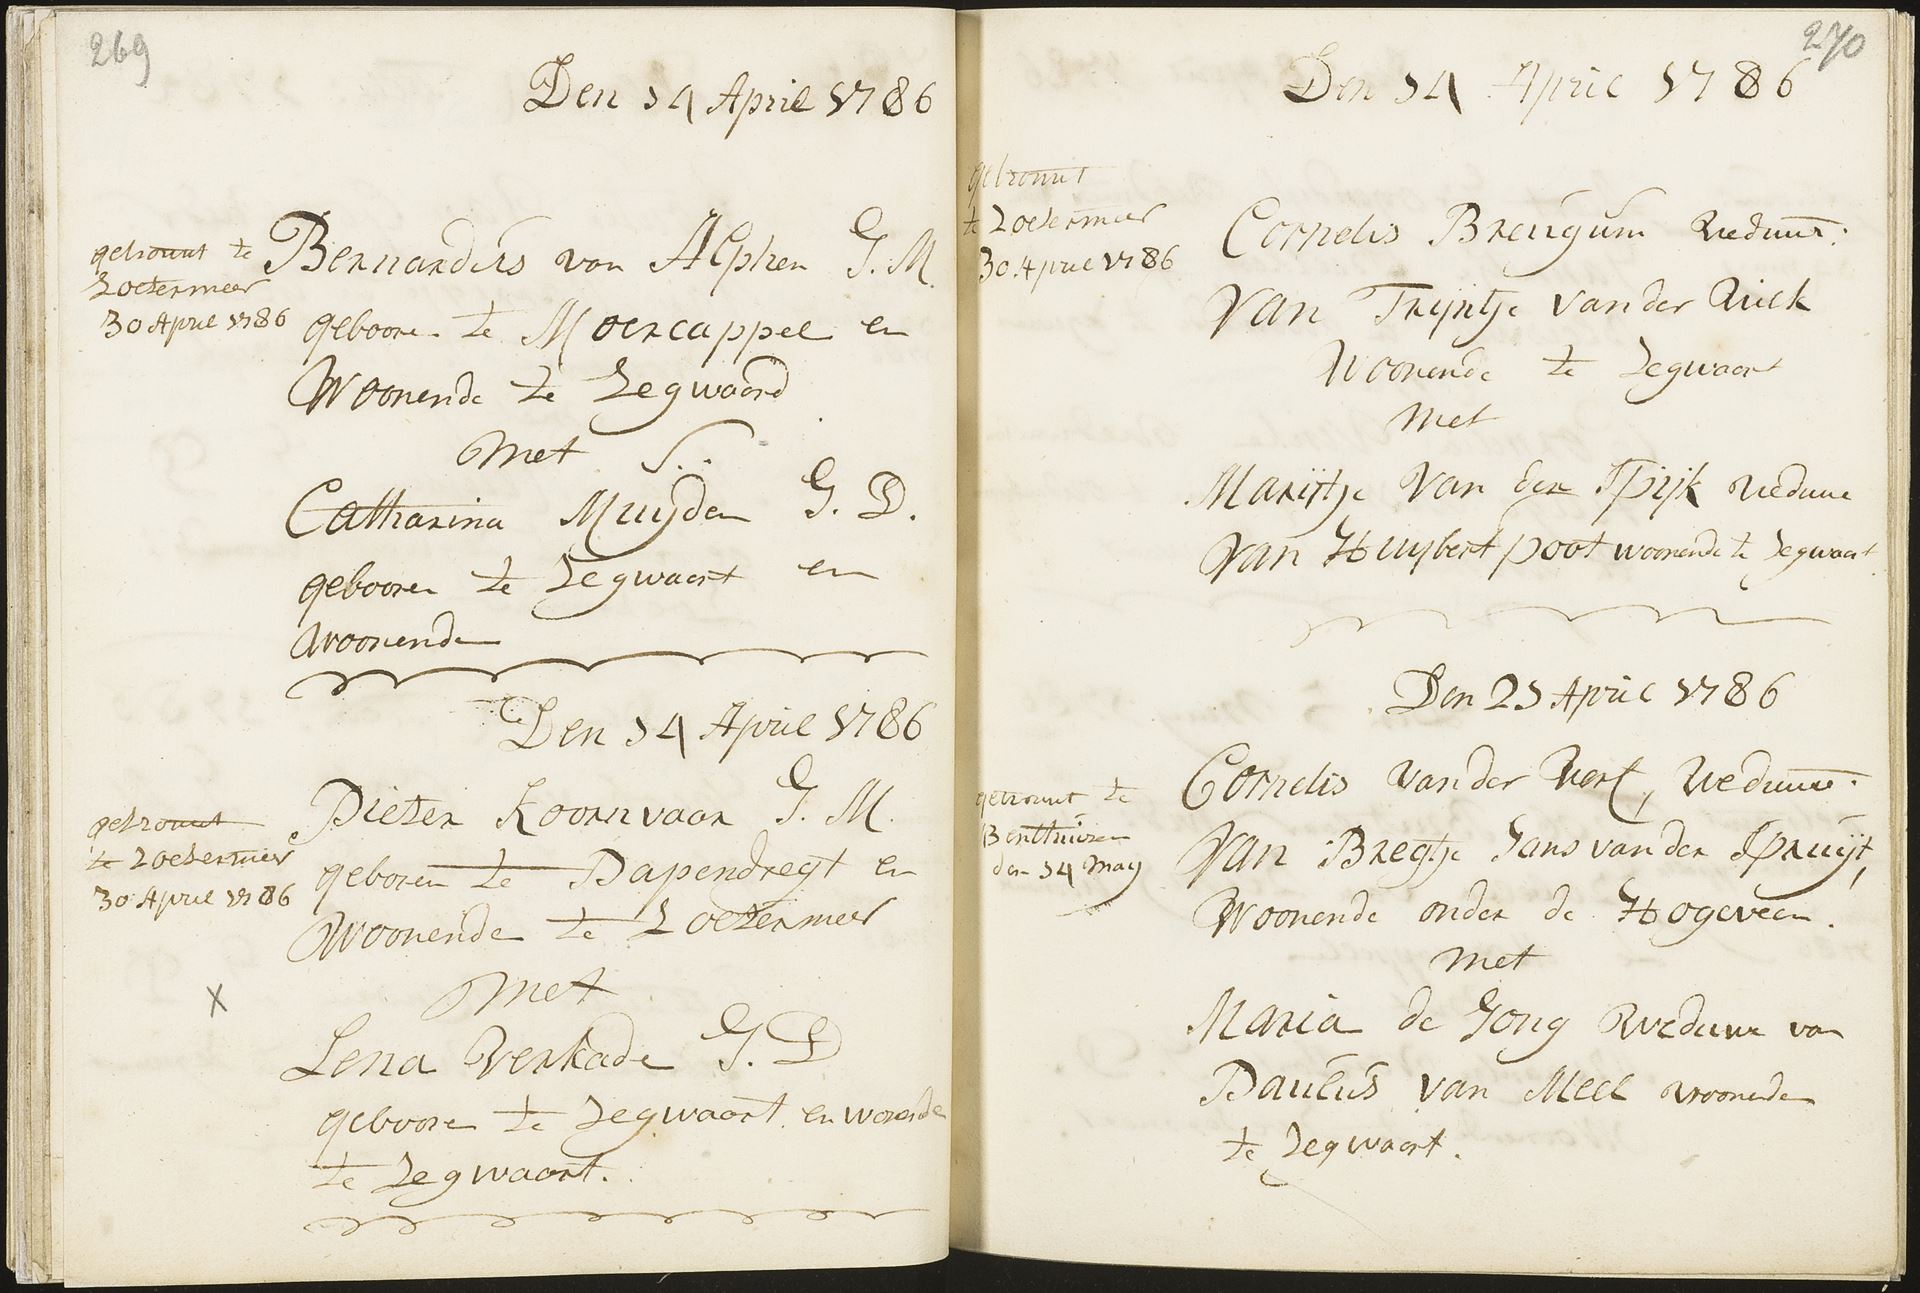 269
Den 14 April 1786
getrouwt te
Zoetermeer
30 April 1786
Bernardus van Alphen J. M.
geboore te Moercappel en
Woonende te Zegwaard
met
Catharina Muyden J. D.
gebooren te Zegwaart en
woonende
Den 14 April 1786
getrouwt
te Zoetermeer
30 April 1786
Pieter Koornvaar J. M.
geboren te Papendregt en
Woonende te Zoetermeer
met
X
Lena Verkade J. D
geboore te Zegwaart en wonende
te Zegwaart.
270
Den 14 April 1786
getrouwt
te Zoetermeer
30 April 1786
Cornelis Breugum Weduwr.
Van Trijntje van der
Woonende te Zegwaart
Met
Marijtje Van der Spijk Weduwe
Van Huijbert Poot woonende te Zegwaart
Den 21 April 1786
getrouwt te
Benthuizen
den 14 May
Cornelis van der Werf, Weduwr.
Van Bregtje Jans van der Spruijt,
Woonende onder de Hogeveen.
met
Maria de Jong Weduwe van
Paulus van Meel woonende
te Zegwaart.